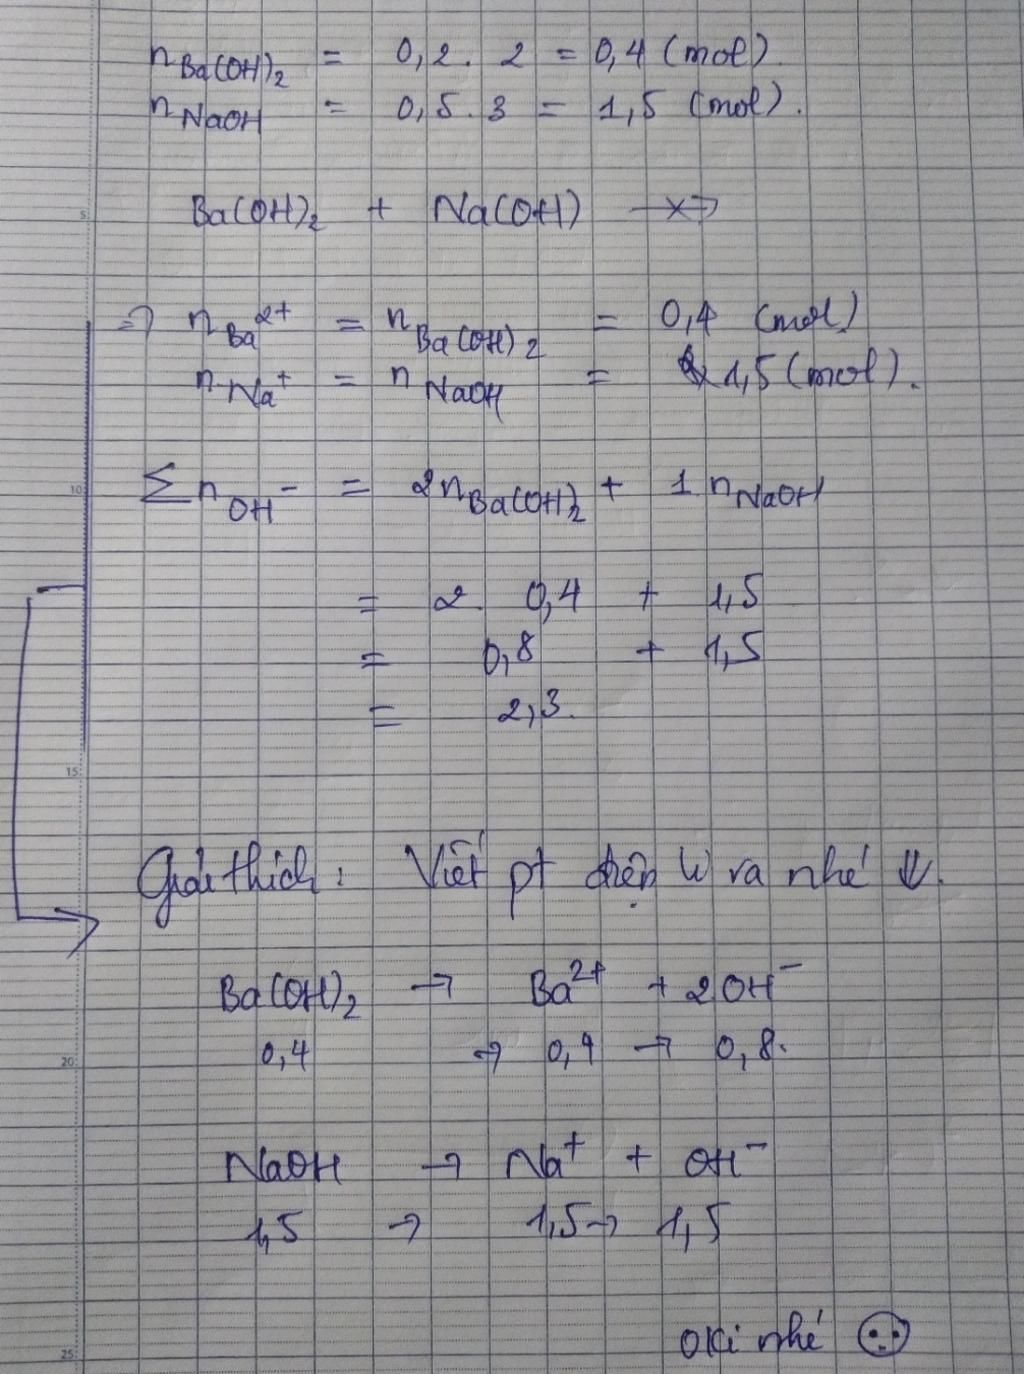 n Ba(OH)₂ = 0,2 . 2 = 0,4 (mol).
n NaOH = 0,5 . 3 = 1,5 (mol).
5
Ba(OH)₂ + Na(OH) -x->
=> n Ba²⁺ = n Ba(OH)₂ = 0,4 (mol)
n Na⁺ = n NaOH = 1,5 (mol).
10
Σ n OH⁻ = 2n Ba(OH)₂ + 1.n NaOH
= 2. 0,4 + 1,5
= 0,8 + 1,5
= 2,3.
15
Giải thích: Viết pt điện li ra nhé ⇓.
Ba(OH)₂ → Ba²⁺ + 2OH⁻
20
0,4 → 0,4 → 0,8.
NaOH → Na⁺ + OH⁻
1,5 → 1,5 → 1,5
25
oki nhé